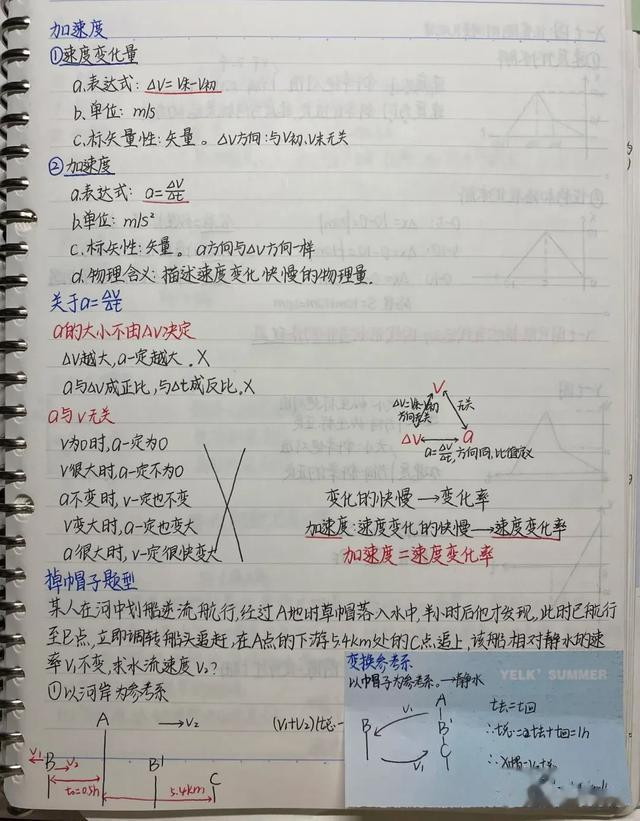 加速度
①速度变化量
a.表达式: ΔV=V末-V初
b.单位: m/s
c.标矢量性:矢量。ΔV方向:与V初、V末无关
②加速度
a.表达式: a=ΔV/Δt
b.单位: m/s²
c.标矢性:矢量。a方向与ΔV方向一样
d.物理含义:描述速度变化快慢的物理量.
关于a=ΔV/Δt
a的大小不由ΔV决定
ΔV越大,a一定越大.X
a与ΔV成正比,与Δt成反比.X
a与v无关
v为0时,a一定为0
v很大时,a一定不为0
a不变时,v一定也不变
v变大时,a一定也变大
a很大时,v一定很快变大
V
ΔV=V末-V初
无关
ΔV
a
a=ΔV/Δt,方向同,比值定义
变化的快慢→变化率
加速度:速度变化的快慢→速度变化率
加速度=速度变化率
掉帽子题型
某人在河中划船逆流航行,经过A地时草帽落入水中,半小时后他才发现,此时已航行
至B点,立即调转船头追赶,在A点的下游5.4km处的C点追上,该船相对静水的速
率V₁不变,求水流速度V₂?
①以河岸为参考系
A
→V₂
V₁
B
V₂
B'
C
t₀=0.5h
5.4km
变换参考系
YELK' SUMMER
以巾冒子为参考系。→静水
A
V₁
B
B'
C
V₁
t去=t回